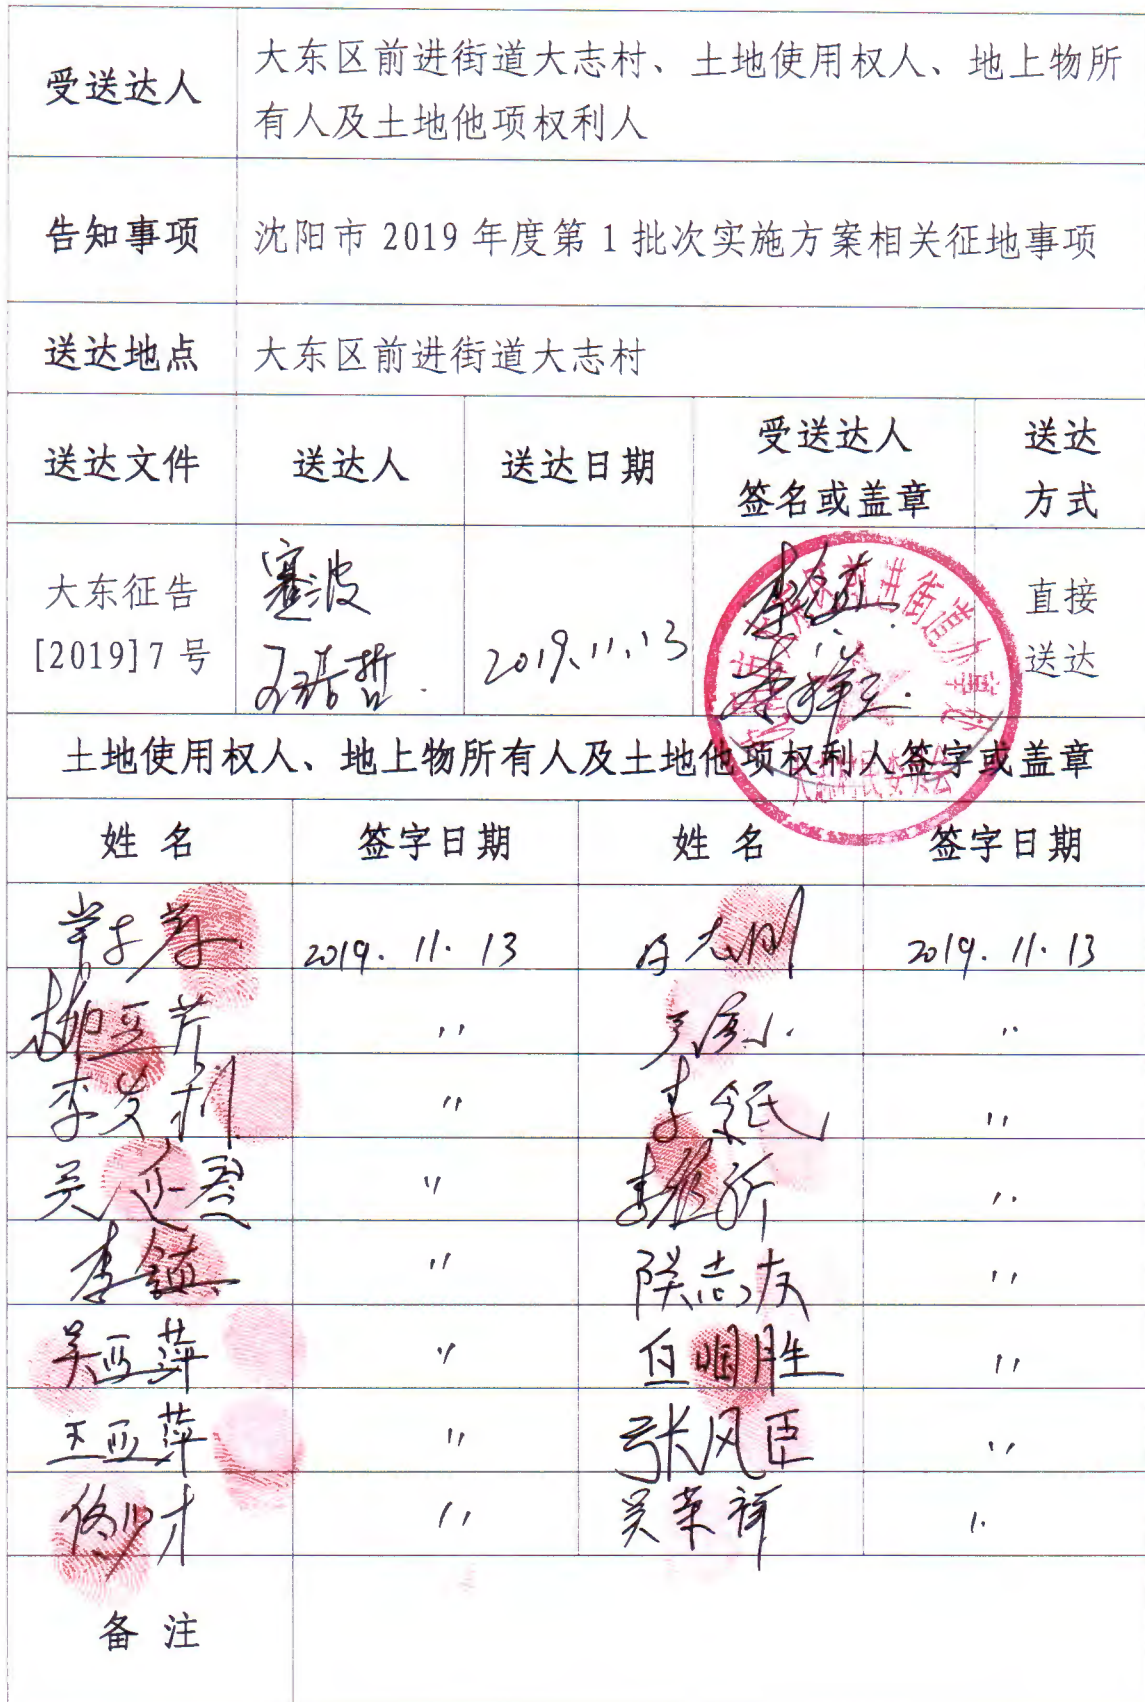 受送达人
大东区前进街道大志村、土地使用权人、地上物所
有人及土地他项权利人
告知事项
沈阳市 2019 年度第 1 批次实施方案相关征地事项
送达地点
大东区前进街道大志村
送达文件
送达人
送达日期
受送达人
签名或盖章
送达
方式
大东征告
[2019]7 号
2019.11.13
直接
送达
前进街道办事处
大志村民委员会
土地使用权人、地上物所有人及土地他项权利人签字或盖章
姓 名
签字日期
姓 名
签字日期
2019. 11. 13
2019. 11. 13
柳亚芹
〃
〃
李发利
〃
〃
〃
〃
〃
〃
吴亚萍
〃
〃
王亚萍
〃
张风臣
〃
佟少才
〃
吴荣祥
〃
备 注